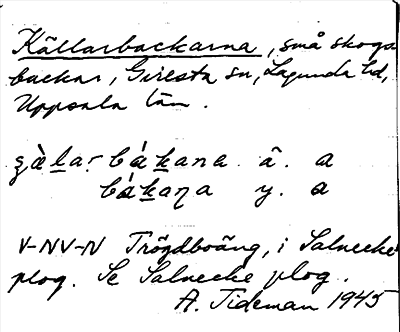 Källarbackarna, små skogs
backar, Giresta sn, Lagunda hd,
Uppsala län.
bákana. ä. a
bákaṇa y. a
V-NV-N Trögdboäng, i Salnecke
plog. Se Salnecke plog.
A. Tideman 1945